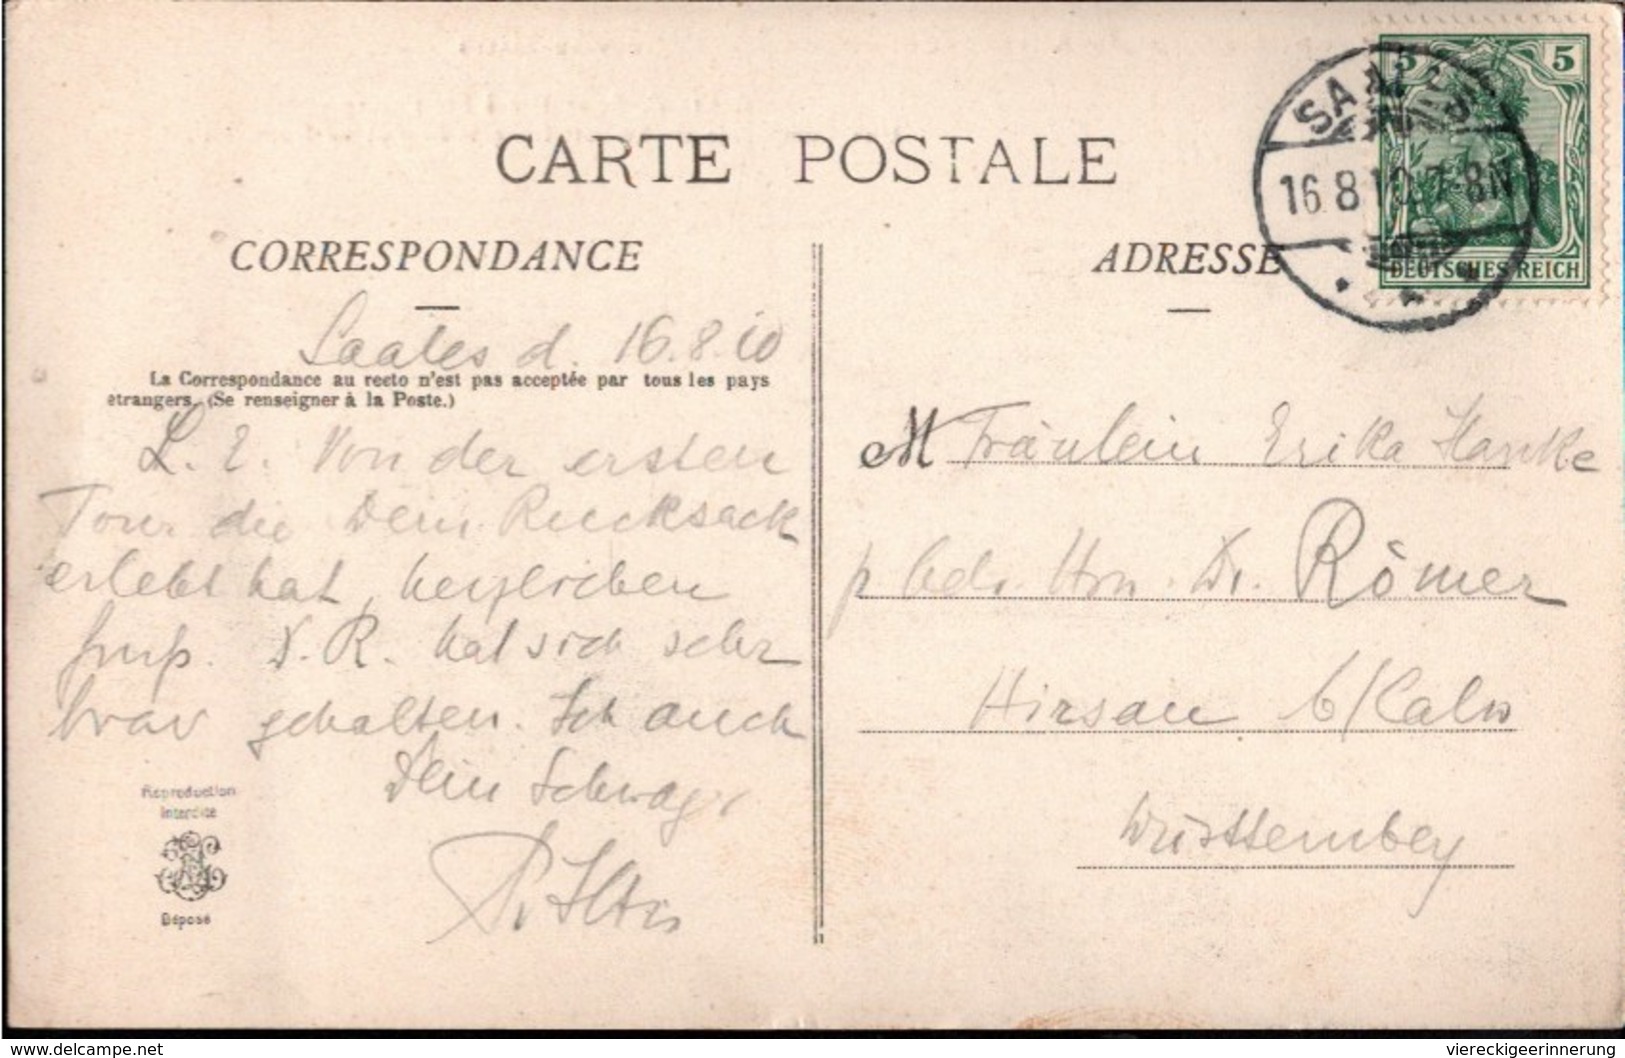 CARTE POSTALE
CORRESPONDANCE
ADRESSE
5 5
DEUTSCHES REICH
SAALES
16.8.10.7-8N
Saales d. 16.8.10
La Correspondance au recto n'est pas acceptée par tous les pays
étrangers. (Se renseigner à la Poste.)
L. E. Von der ersten
Tour die Dein Rucksack
erlebt hat, herzlichen
D. R. hat sich sehr
brav gehalten. Ich auch
Dein Schwager
M Fräulein Erika Hanke
p. Adr. Hrn. Dr. Römer
Hirsau b/Calw
Württemberg
Reproduction
Interdite
Déposé
www.delcampe.net
viereckigeerinnerung